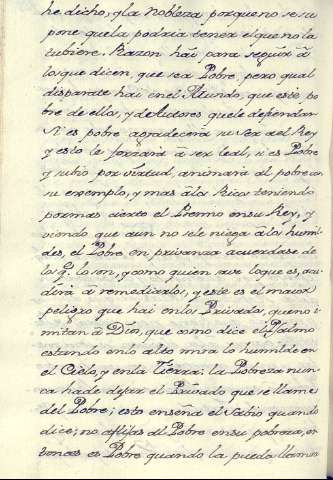 he dicho, q̃ la Nobleza, porque no se su
pone que la podria tener el que no la
tubiere. Razon hai para seguir â
los que dicen, que sea Pobre, pero qual
disparate hai en el Mundo, que este po
bre de ellos, y de Autores que le defiendan
Si es pobre agradecerá su ser al Rey
y esto le forzará â ser leal, si es Pobre
y subio por virtud, animará al pobre con
su exemplo, y mas â los Ricos teniendo
por mas cierto el Premio en su Rey, y
viendo que aun no se niega â los humil
des, el Pobre en privanza acuerdase de
los q̃ lo son, y como quien save lo que es, acu
dirá â remediarlos, y este es el maior
peligro que hai en los Privados, que no i
mitan â Dios, que como dice el Psalmo
estando en lo alto mira lo humilde en
el Cielo, y en la Tierra: la Pobreza nun
ca ha de dejar el Privado que se llame
del Pobre; esto enseña el Sabio quando
dice; no aflijas al Pobre en su pobreza, en
tonces es Pobre quando la pueda llamar